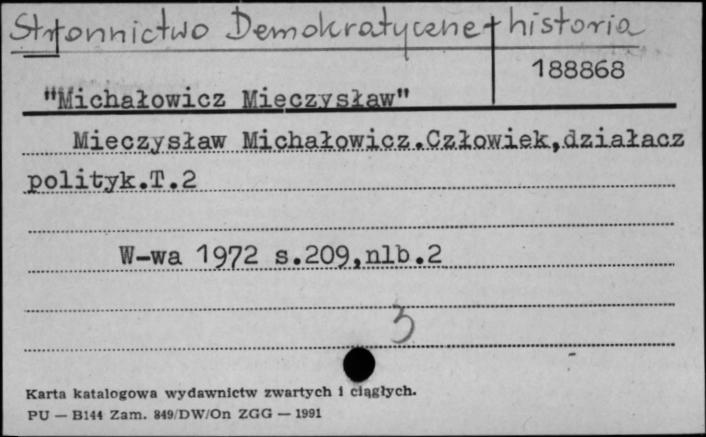 Stronnictwo Demokratyczne + historia
188868
"Michałowicz Mieczysław"
Mieczysław Michałowicz.Człowiek,działacz
polityk.T.2
W-wa 1972 s.209,nlb.2
3
Karta katalogowa wydawnictw zwartych i ciągłych.
PU — B144 Zam. 849/DW/On ZGG — 1991